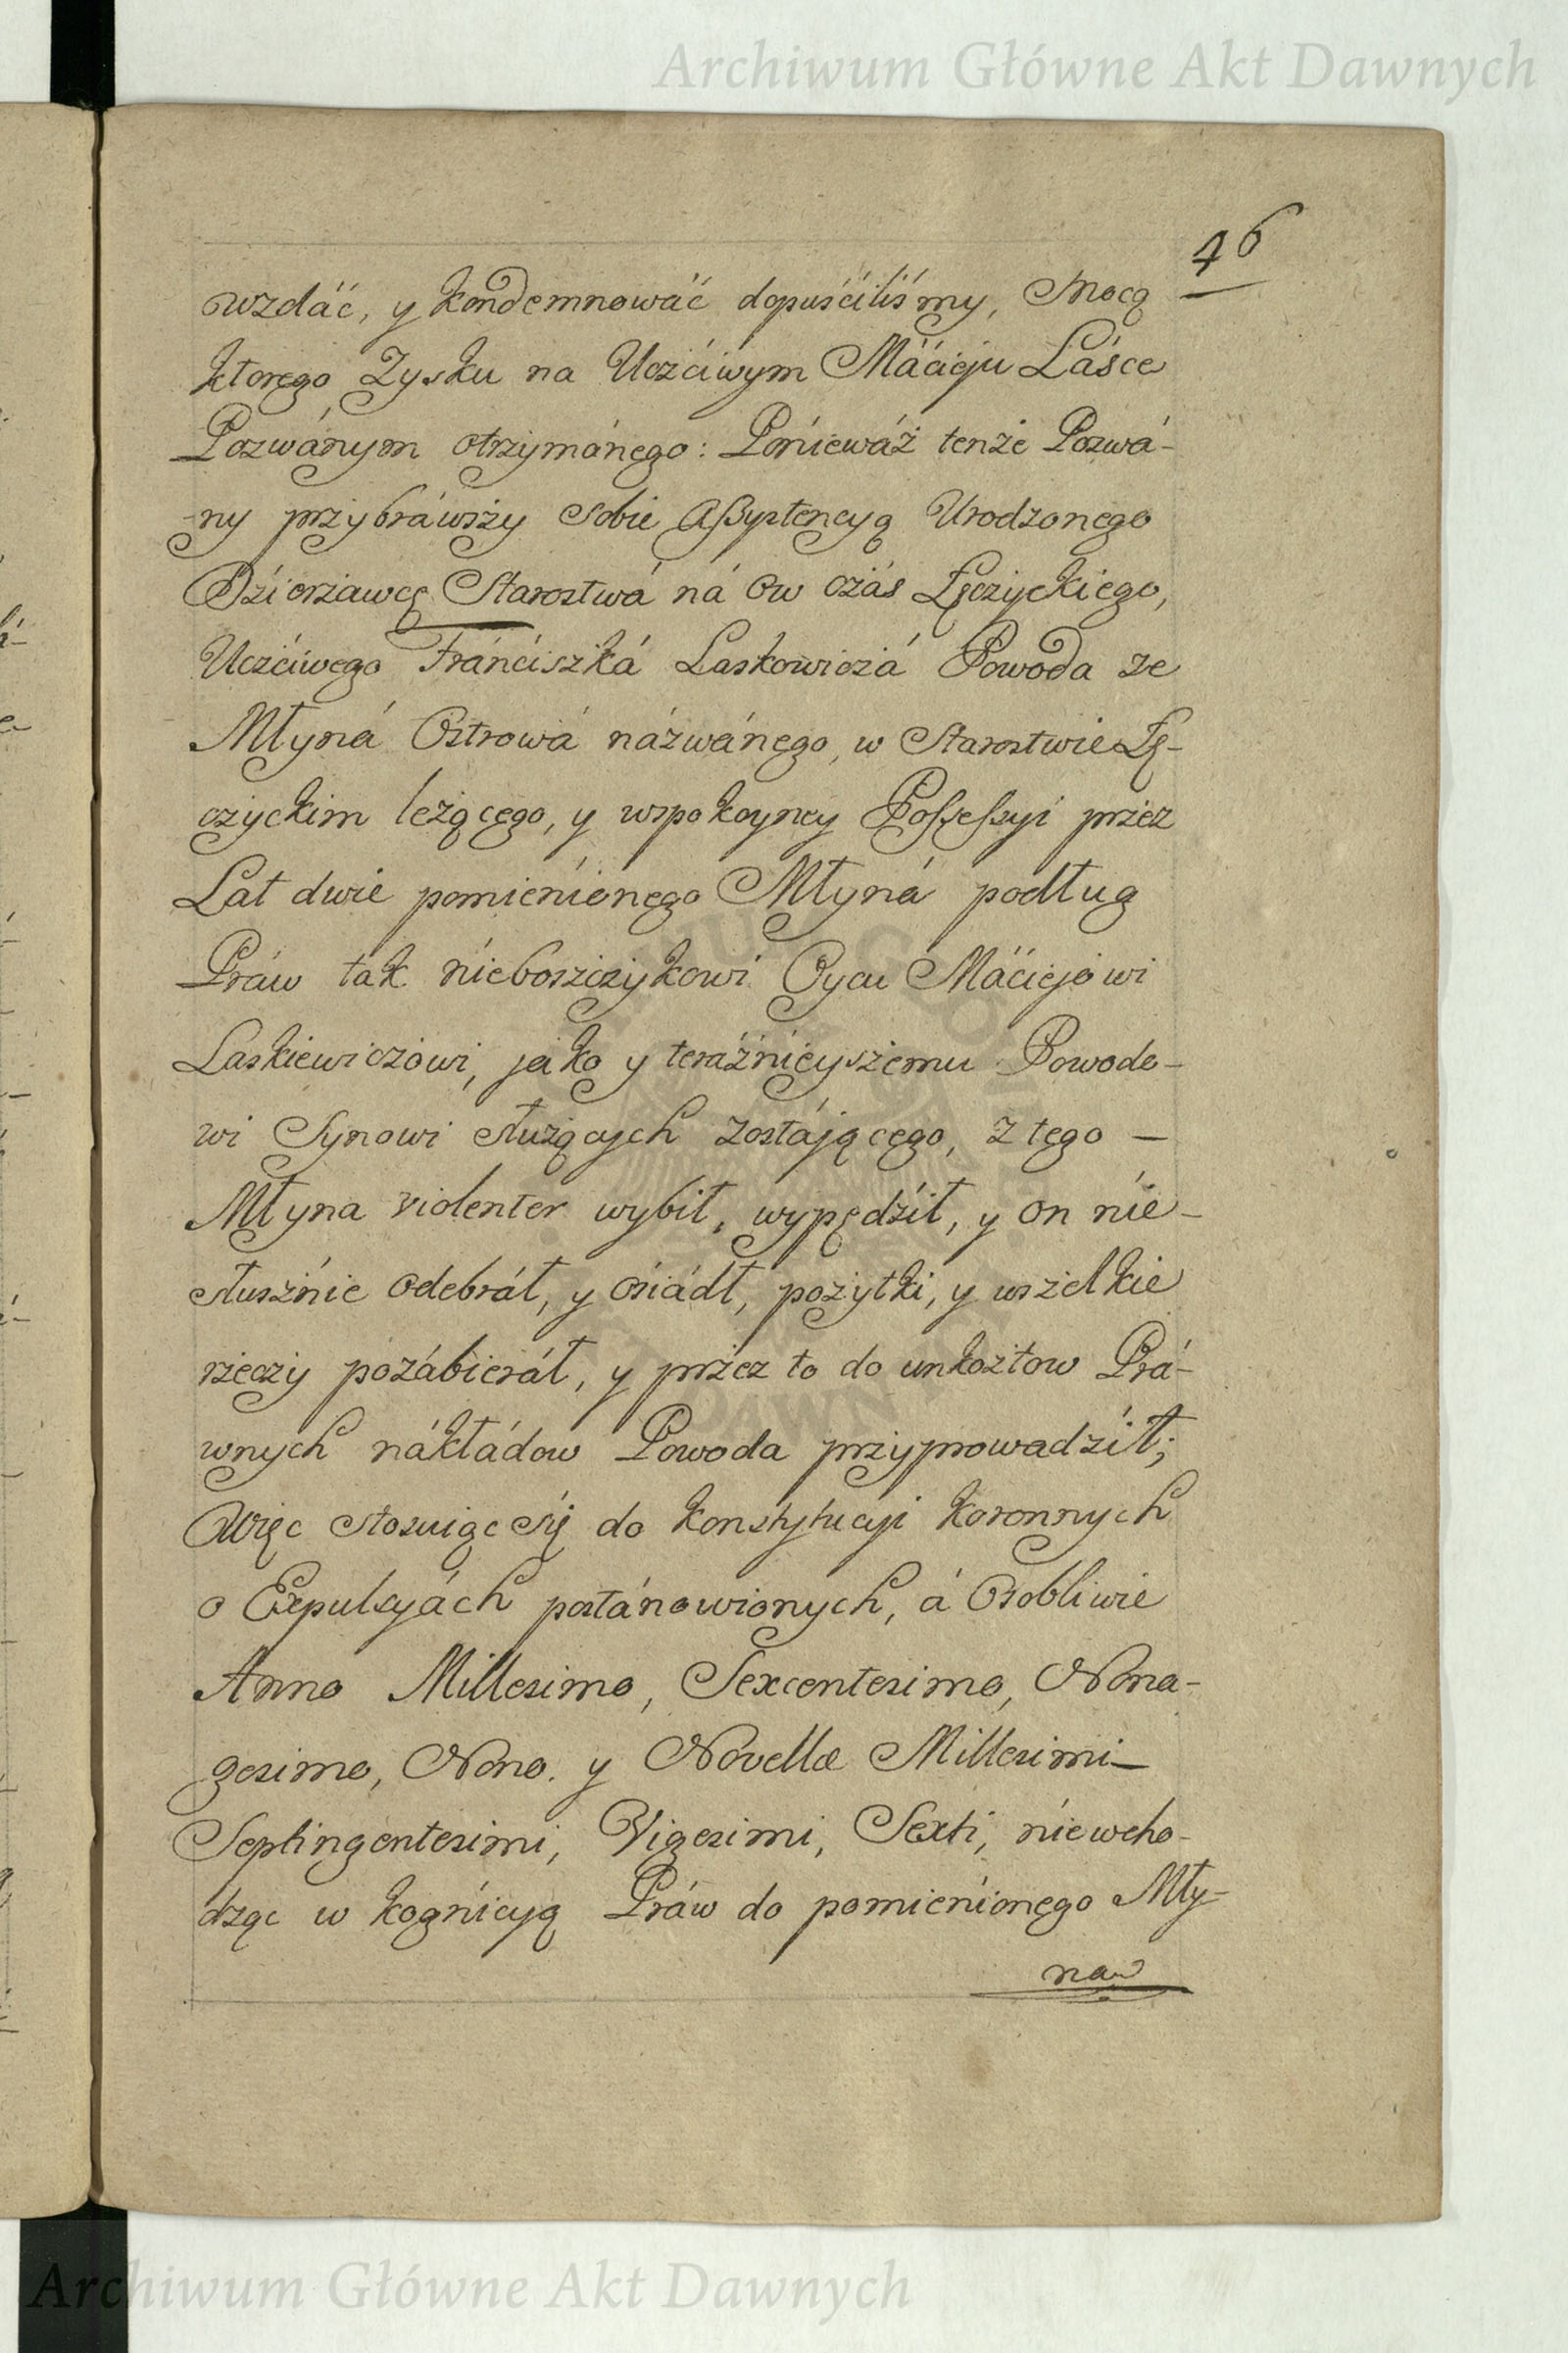 Archiwum Główne Akt Dawnych
46
wzdáć, y kondemnowáć dopuściliśmy, Mocą
ktorego Zysku na Uczćiwym Máćieju Láśce
Pozwánym otrzymánego: Poniewáż tenże Pozwá-
-ny przybráwszy sobie Assystencyą Urodzonego
Dźierżawcę Starostwá ná ow czás Łęczyckiego,
Uczćiwego Fránćiszká Laskowiczá Powoda ze
Młyná Ostrowá názwánego, w Starostwie Łę-
czyckim leżącego, y wspokoyney Possessyi przez
Lat dwie pomienionego Młyná podług
Práw tak nieboszczykowi Oycu Máćiejowi
Laskiewiczowi, jako y teráźnieyszemu Powodo-
wi Synowi służących zostájącego, z tego —
Młyna violenter wybił, wypędźił, y on nie-
słusznie odebrał, y ośiádł, pożytki, y wszelkie
rzeczy pozábierał, y przez to do unkosztow Prá-
wnych nákłádow Powoda przyprowadźił;
Więc stosuiąc się do konstytucyi koronnych
o Expulsyách postánowionych, á Osobliwie
Anno Millesimo, Sexcentesimo, Nona-
gesimo, Nono. y Novellæ Millesimi —
Septingentesimi, Vigesimi, Sexti, niewcho-
dząc w kognicyą Práw do pomienionego Mły-
na
Archiwum Główne Akt Dawnych